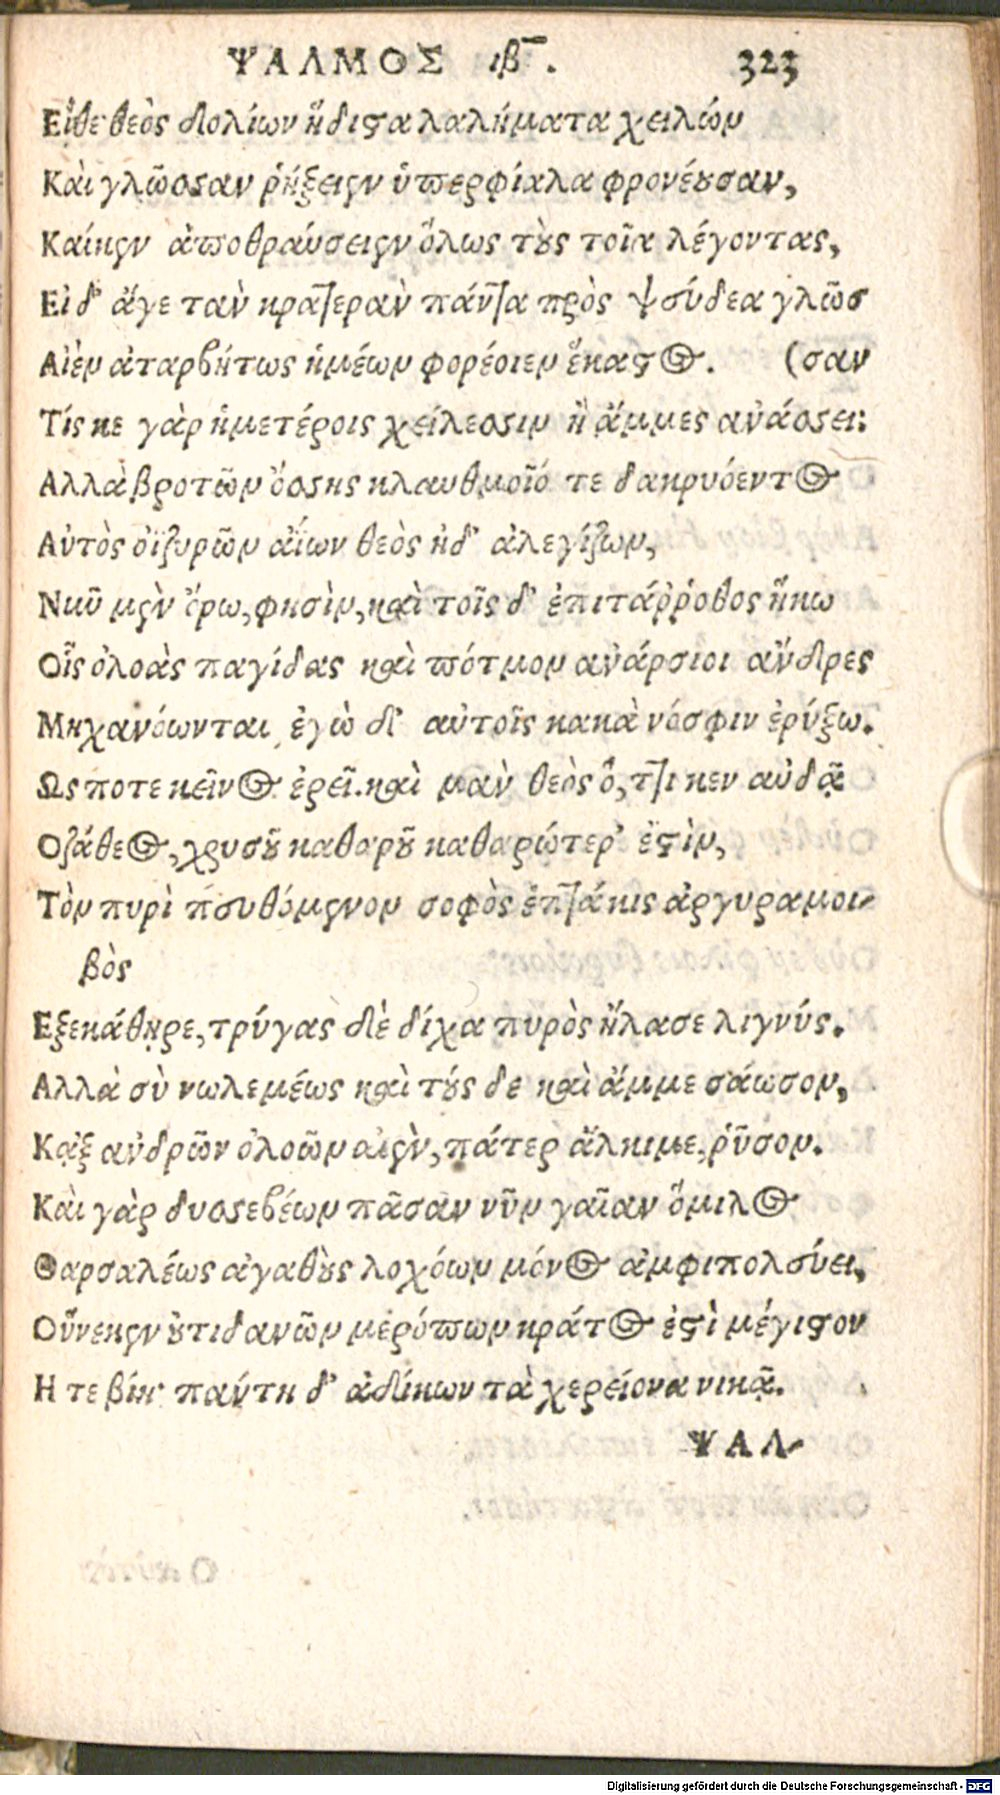 ΨΑΛΜΟΣ ιβ‾. 323
Εἴθε θεὸς δολίων ἥδιστα λαλήματα χειλέων
Καὶ γλῶσσαν ῥήξειεν ὑπερφίαλα φρονέουσαν,
Καίκεν ἀποθραύσειεν ὅλως τοὺς τοῖα λέγοντας,
Εἰ δ' ἄγε ταὺ κρατεραὺ πάντα πρὸς ψεύδεα γλῶσ
Αἰὲν ἀταρβήτως ἡμέων φορέοιεν ἕκαστος. (σαν
Τίς κε γὰρ ἡμετέροις χείλεσσιν ἢ ἄμμες ἀνάσσει;
Αλλὰ βροτῶν ὄσσης κλαυθμοῖό τε δακρυόεντος
Αὐτὸς ὀϊζυρῶν ἀΐων θεὸς ἠδ' ἀλεγίζων,
Νῦν μὲν ὄρω, φησὶν, καὶ τοῖς δ' ἐπιτάῤῥοθος ἥκω
Οἷς ὀλοὰς παγίδας καὶ πότμον ἀνάρσιοι ἄνδρες
Μηχανόωνται, ἐγὼ δ' αὐτοῖς κακὰ νόσφιν ἐρύξω.
Ως ποτε κεῖνος ἐρεῖ. καὶ μαὺ θεὸς ὅ,ττι κεν αὐδᾷ
Οζάθεος, χρυσοῦ καθαροῦ καθαρώτερ' ἐστὶν,
Τὸν πυρὶ πευθόμενον σοφὸς ἑπτάκις ἀργυραμοι-
βὸς
Εξεκάθηρε, τρύγας δὲ δίχα πυρὸς ἤλασε λιγνύς.
Αλλὰ σὺ νωλεμέως καὶ τούς δε καὶ ἄμμε σάωσον,
Κᾀξ ἀνδρῶν ὀλοῶν αἰὲν, πάτερ ἄλκιμε, ῥῦσον.
Καὶ γὰρ δυσσεβέων πᾶσαν νῦν γαῖαν ὅμιλος
Θαρσαλέως ἀγαθοὺς λοχόων μόνος ἀμφιπολεύει,
Οὕνεκεν οὐτιδανῶν μερόπων κράτος ἐστὶ μέγιστον
Η τε βίη· παύτη δ' ἀδίκων τὰ χερείονα νικᾷ.
ΨΑΛ-
Digitalisierung gefördert durch die Deutsche Forschungsgemeinschaft - DFG